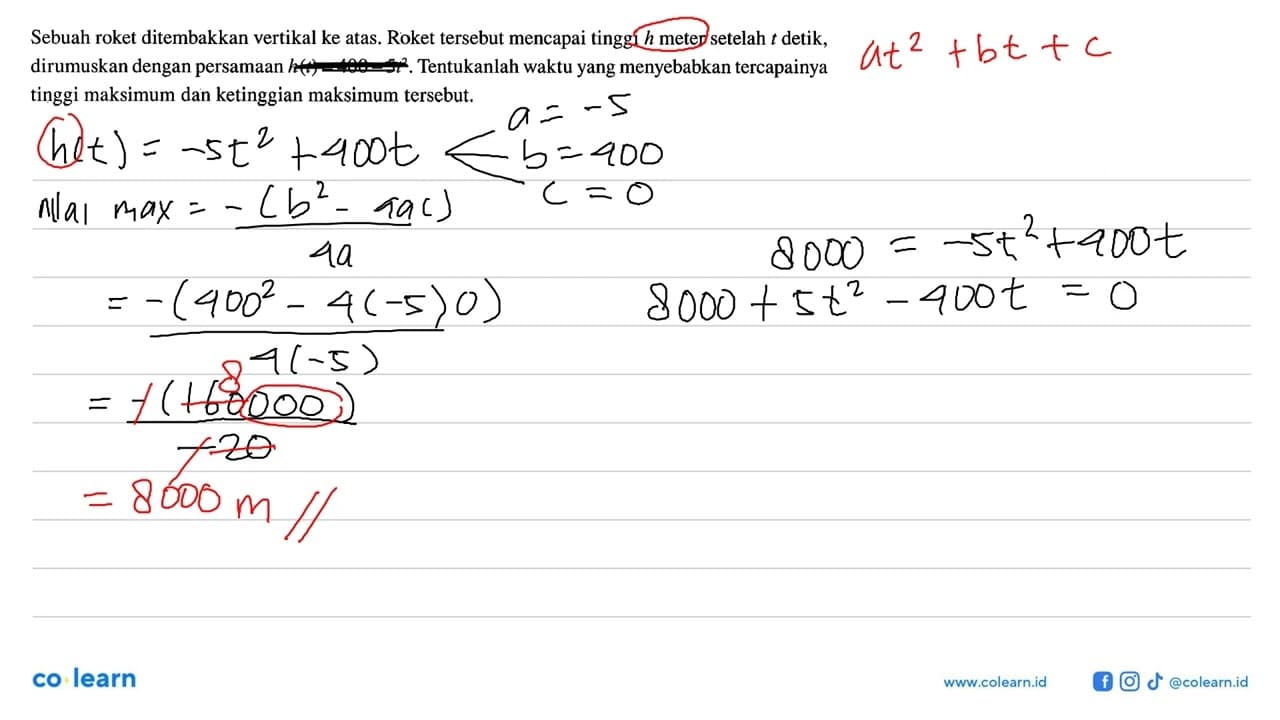 Sebuah roket ditembakkan vertikal ke atas. Roket tersebut mencapai tinggi h meter setelah t detik,
dirumuskan dengan persamaan h(t) = 400 - 5t². Tentukanlah waktu yang menyebabkan tercapainya
tinggi maksimum dan ketinggian maksimum tersebut.
at² + bt + c
h(t) = -5t² + 400t
a = -5
b = 400
c = 0
Nilai max = -(b² - 4ac)
4a
= -(400² - 4(-5)0)
4(-5)
8
= -(160000)
-20
= 8000 m //
8000 = -5t² + 400t
8000 + 5t² - 400t = 0
co learn
www.colearn.id
@colearn.id